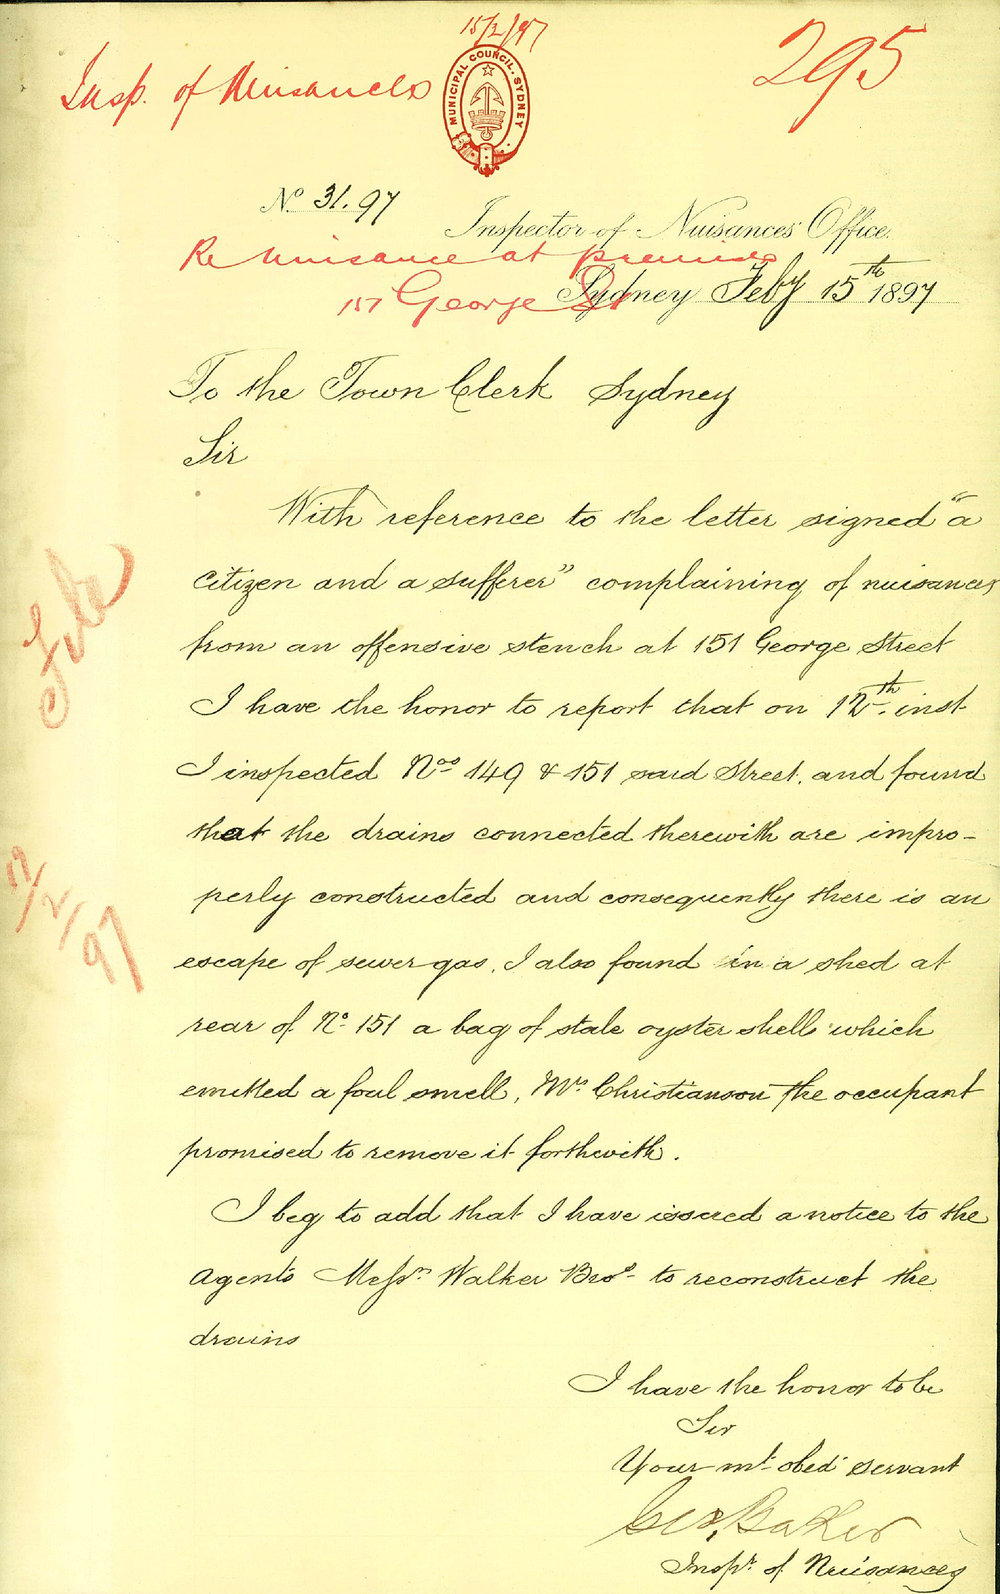 15/2/97
Insp. of Nuisances
295
MUNICIPAL COUNCIL. SYDNEY
No. 31.97
Inspector of Nuisances Office.
Re nuisance at premises
151 George St
Sydney Feby 15th 1897
To the Town Clerk Sydney
Sir
With reference to the letter signed "a
citizen and a sufferer" complaining of nuisances
from an offensive stench at 151 George Street
I have the honor to report that on 12th. inst
I inspected Nos 149 & 151 said Street. and found
that the drains connected therewith are impro-
perly constructed and consequently there is an
escape of sewer gas. I also found in a shed at
rear of No. 151 a bag of stale oyster shells which
emitted a foul smell, Mrs. Christianson the occupant
promised to remove it forthwith.
I beg to add that I have issued a notice to the
agents Messrs. Walker Bros. to reconstruct the
drains
I have the honor to be
Sir
Your mt. obed servant
Geo. Baker
Inspr. of Nuisances
File
17/2/97